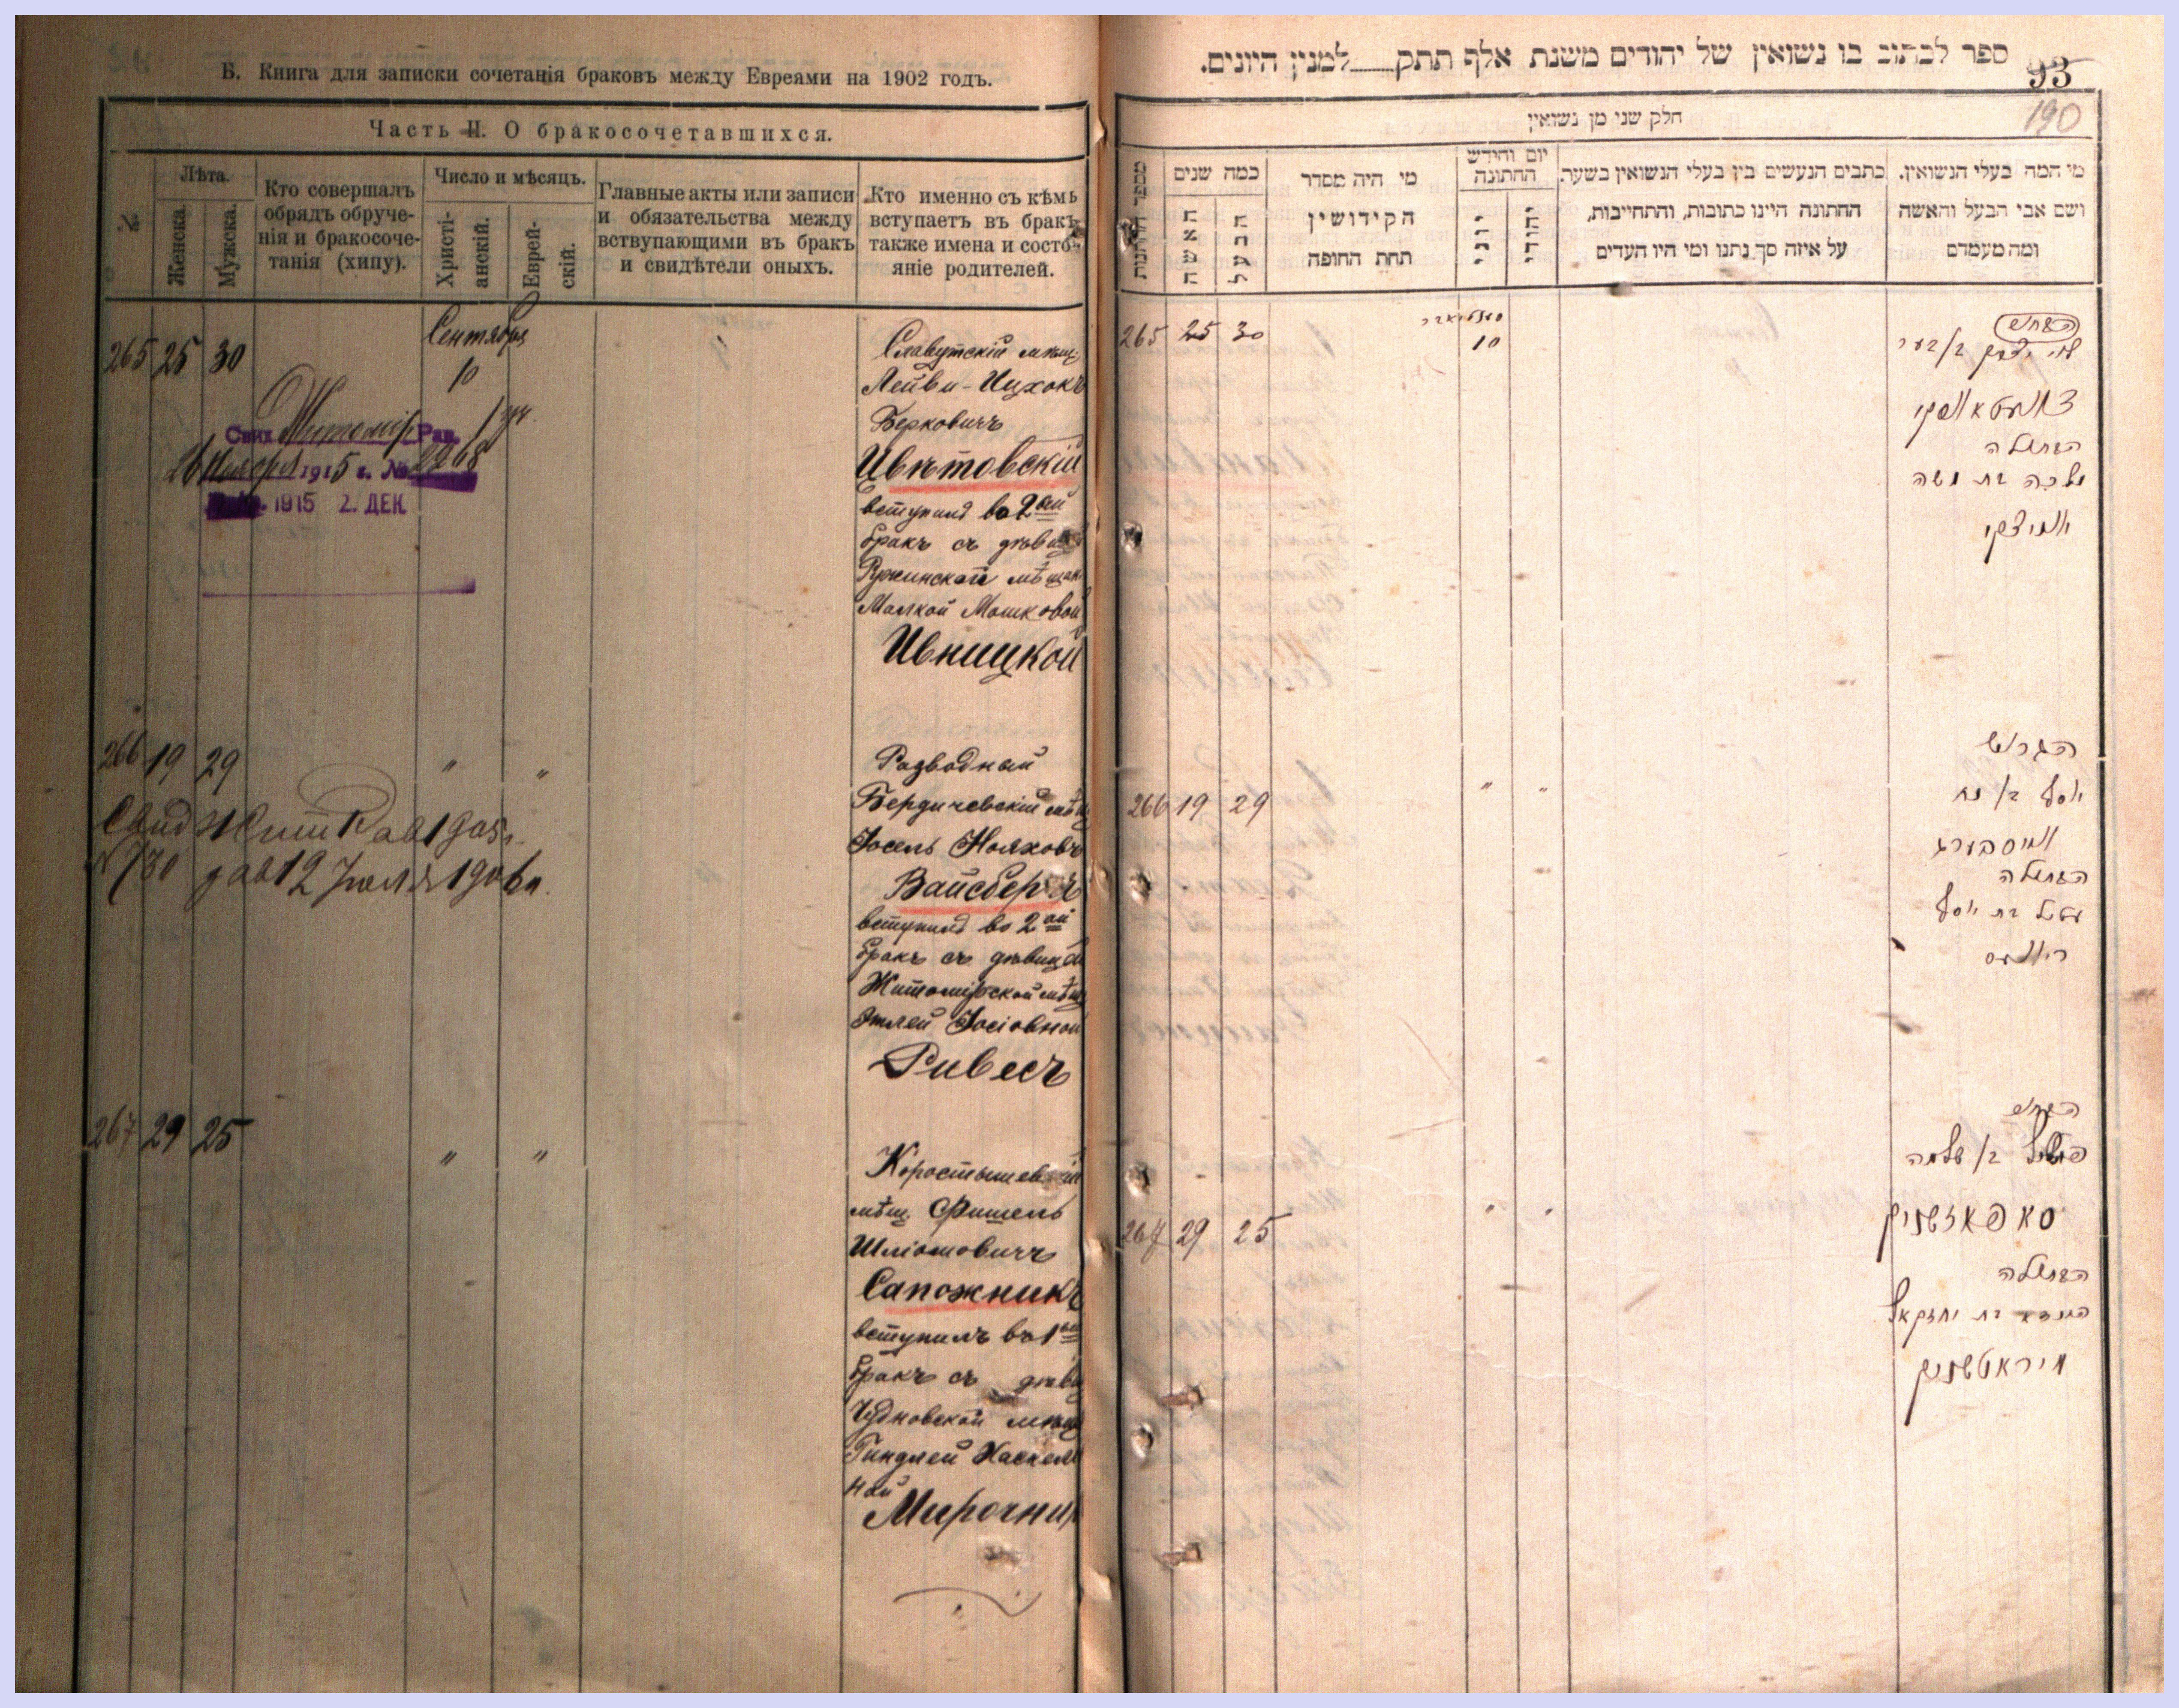 Б. Книга для записки сочетанія браковъ между Евреями на 1902 годъ.
Часть II. О бракосочетавшихся.
№
Лѣта.
Женска.
Мужска.
Кто совершалъ
обрядъ обруче-
нія и бракосоче-
танія (хипу).
Число и мѣсяцъ.
Христі-
анскій.
Еврей-
скій.
Главные акты или записи
и обязательства между
вступающими въ бракъ
и свидѣтели оныхъ.
Кто именно съ кѣмъ
вступаетъ въ бракъ
также имена и состо-
яніе родителей.
265 25 30
Сентября
10
Славутскій мѣщ.
Лейви-Ицхокъ
Берковичъ
Цвѣтовскій
вступилъ во 2ой
бракъ съ дѣвиц
Ружинской мѣщан
Малкой Мошковой
Ивницкой
Свид Житомір Рав.
26 Ноября 1915 г. № 2968
1915 2. ДЕК
266 19 29
" "
Разводный
Бердичевскій мѣщ
Іосель Нояховъ
Вайсбергъ
вступилъ во 2ой
бракъ съ дѣвицей
Житомірской мѣщ
Этлей Іосіовной
Ривесъ
Свид Жит Рав 1905г.
№ 730 дав 12 Іюля 1906г.
267 29 25
" "
Коростышевскій
мѣщ. Фишель
Шліомовичъ
Сапожникъ
вступилъ въ 1ый
бракъ съ дѣви
Чудновской мѣщ
Гиндлей Хаскел
ной
Мирочник
ספר לכתוב בו נשואין של יהודים משנת אלף תתק למנין היונים.
93
190
חלק שני מן נשואין
מספר החתונות
כמה שנים
האשה
הבעל
מי היה מסדר
הקידושין
תחת החופה
יום וחידש
החתונה
יוני
יהודי
כתבים הנעשים בין בעלי הנשואין בשער.
החתונה היינו כתובות, והתחייבות,
על איזה סך נתנו ומי היו העדים
מי המה בעלי הנשואין.
ושם אבי הבעל והאשה
ומה מעמדם
265 25 30
10
לוי יצחק ב/ בער
צוועטאווסקי
הבתולה
מלכה בת משה
יווניצקי
266 19 29
" "
הגרוש
יוסף ב/ נח
ווייסבערג
הבתולה
עטיל בת יוסף
ריוועס
267 29 25
" "
הבחור
פישל ב/ שלמה
סאפאזשניק
הבתולה
הינדא בת יחזקאל
מיראטשניק